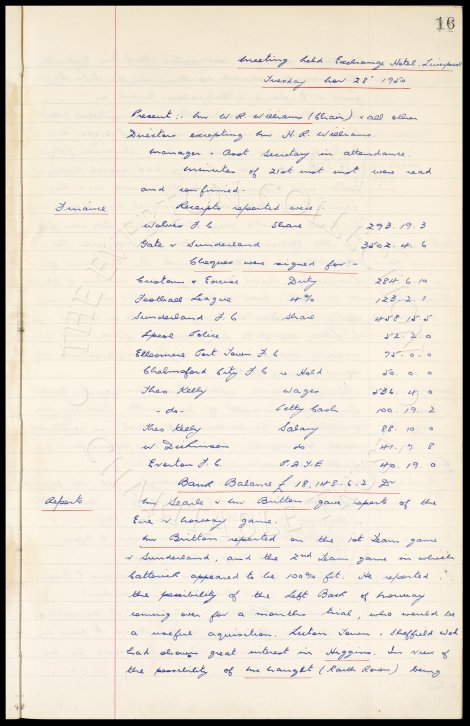 16
Meeting held Exchange Hotel, Liverpool
Tuesday Nov 28th 1950
Present:- Mr W. R. Williams (Chair) & all other
Directors excepting Mr H. R. Williams.
Manager & Asst Secretary in attendance.
Minutes of 21st inst were read
and confirmed.
Finance Receipts reported were:-
Wolves F.C Share 293.19.3
Gate v Sunderland 3502.4.6
Cheques were signed for:-
Customs & Excise Duty 284.6.10
Football League 4% 123.2.1
Sunderland F.C Share 458.15.5
Lpool Police 52.2.0
Ellesmere Port Town F.C 75.0.0
Chelmsford City F.C re Hold 50.0.0
Theo Kelly Wages 536.4.0
-do- Petty Cash 100.19.2
Theo Kelly Salary 88.10.0
W. Dickinson do 41.19.8
Everton F.C. P.A.Y.E 40.19.0
Bank Balance £18,148.6.2 Dr
Reports Mr Searle & Mr Britton gave report of the
Eire v Norway game.
Mr Britton reported on the 1st Team game
v Sunderland, and the 2nd Team game in which
Catterick appeared to be 100% fit. He reported
the possibility of the Left Back of Norway
coming over for a months trial, who would be
a useful acquisition. Luton Town, Sheffield Wed
had shown great interest in Higgins. In view of
the possibility of (Raith Rovers) being
THE EVERTON COLLECTION